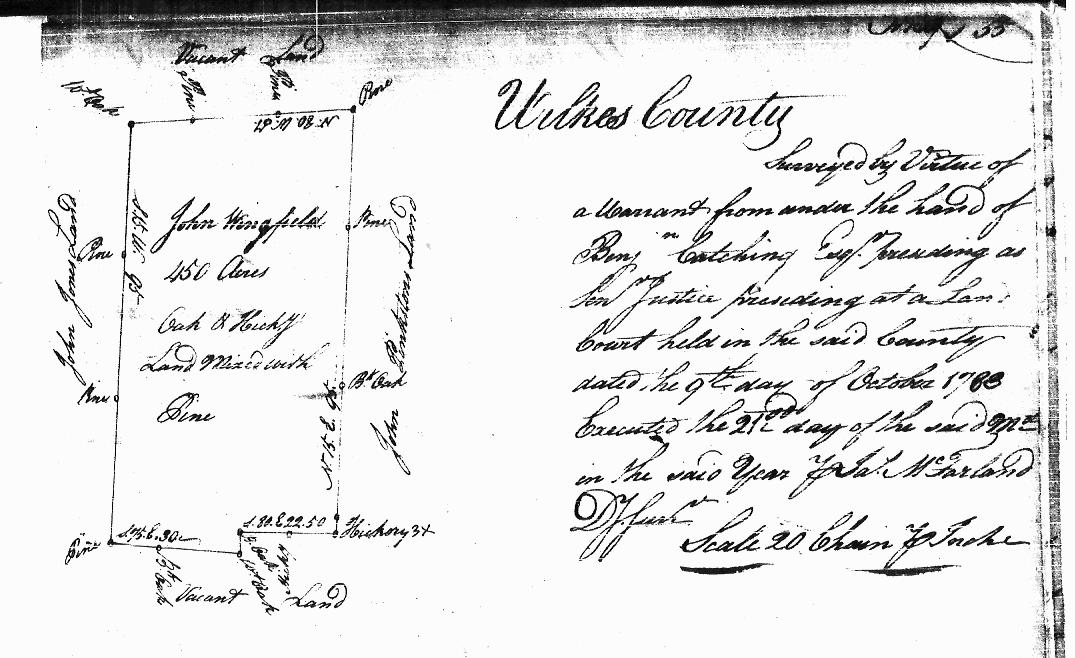 55
Vacant Land
Pine
Pine
Wt Oak
Pine
N. 80. W. 51
S. 15. W. 95
John Jones Land
Pine
Pine
John Wingfield
450 Acres
Oak & Hicky
Land Mixed with
Pine
Pine
Bk Oak
John Land
N. 15. E. 95.
Pine
S. 75. E. 30
S. 80. E 22.50
Hickory 3x
Oak
Wt Oak
Vacant Land
Wilkes County
Surveyed by Virtue of
a Warrant from under the hand of
Benjn Catching Esqr. presiding as
Senr Justice presiding at a Lan
Court held in the said County
dated the 9th day of October 1783
Executed the day of the said
in the said Year Jas. McFarland
D
Scale 20 Chain Inch